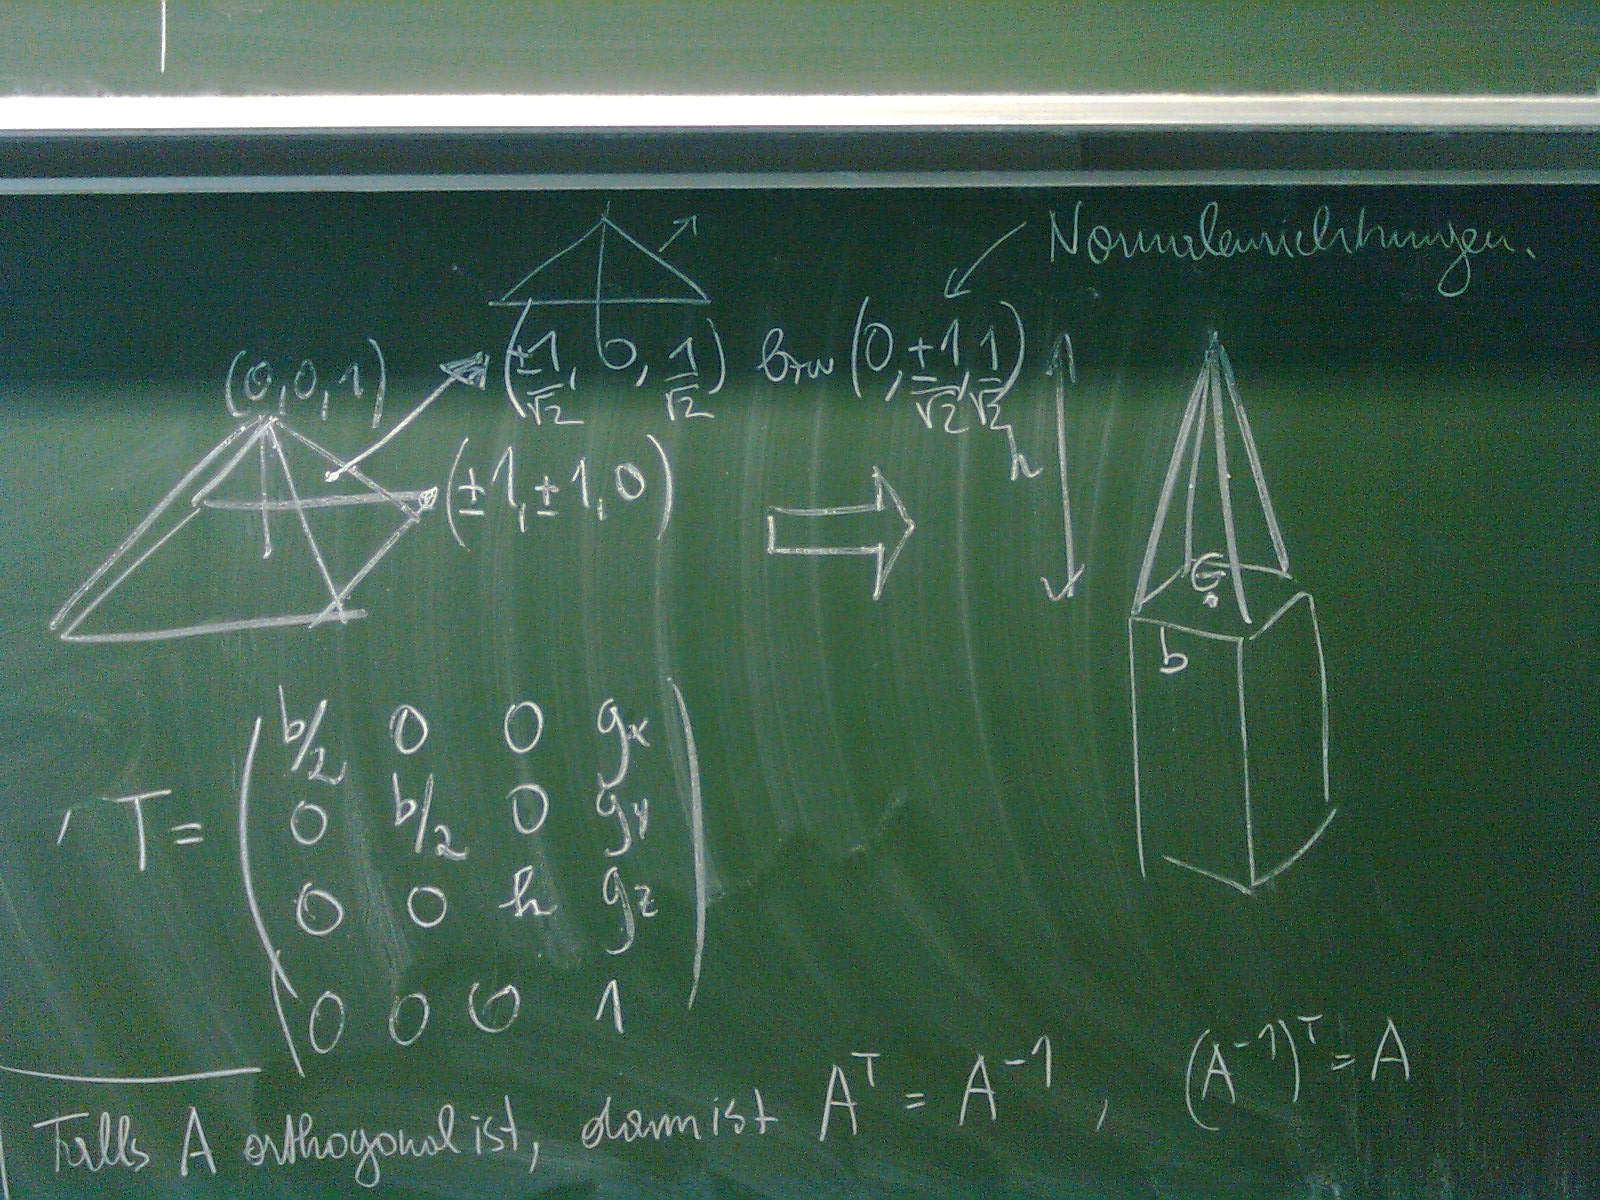 Normalenrichtungen.
(0,0,1)
(±1/√2, 0, 1/√2) bzw (0, ±1/√2, 1/√2)
(±1, ±1, 0)
h
G
b
T = ( b/2 0 0 gx
0 b/2 0 gy
0 0 h gz
0 0 0 1 )
Falls A orthogonal ist, dann ist Aᵀ = A⁻¹, (A⁻¹)ᵀ = A